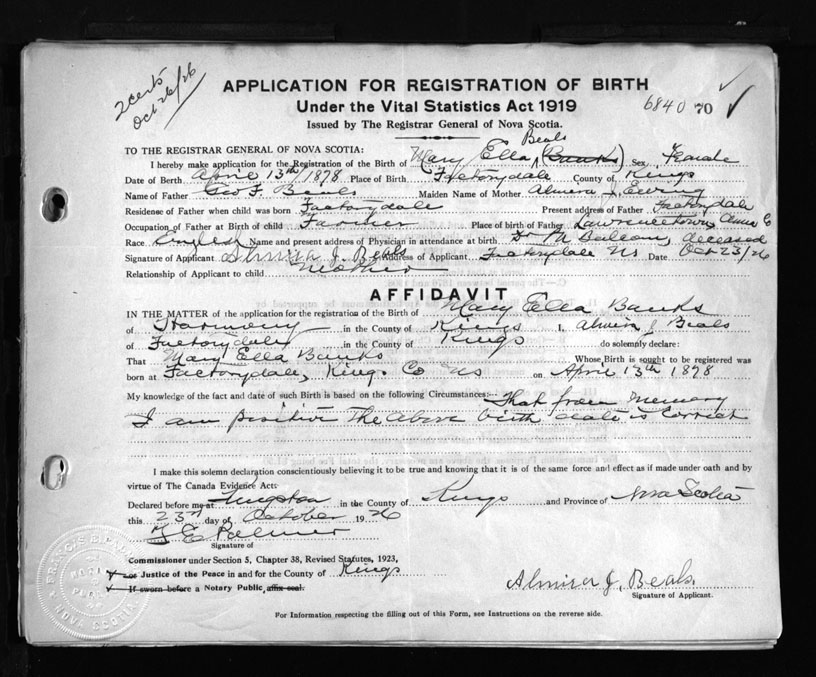 2 certs
Oct 26/26
APPLICATION FOR REGISTRATION OF BIRTH
Under the Vital Statistics Act 1919
Issued by The Registrar General of Nova Scotia.
6840 70
TO THE REGISTRAR GENERAL OF NOVA SCOTIA:
Beals
I hereby make application for the Registration of the Birth of Mary Ella (Banks) Sex Female
Date of Birth April 13th/1878 Place of Birth Factorydale County of Kings
Name of Father Geo F. Beals Maiden Name of Mother Almira J Ewing
Residence of Father when child was born Factorydale Present address of Father Factorydale
Occupation of Father at Birth of child Farmer Place of birth of Father Lawrencetown, Anna Co
Race English Name and present address of Physician in attendance at birth Dr M deceased
Signature of Applicant Almira J. Beals Address of Applicant Factorydale NS Date Oct 23/26
Relationship of Applicant to child Mother
AFFIDAVIT
IN THE MATTER of the application for the registration of the Birth of Mary Ella Banks
of Harmony in the County of Kings I, Almira J Beals
of Factorydale in the County of Kings do solemnly declare:
That Mary Ella Banks Whose Birth is sought to be registered was
born at Factorydale, Kings Co NS on April 13th 1878
My knowledge of the fact and date of such Birth is based on the following Circumstances: That from memory
I am positive the above birth date is correct
I make this solemn declaration conscientiously believing it to be true and knowing that it is of the same force and effect as if made under oath and by
virtue of The Canada Evidence Act.
Declared before me at Kingston in the County of Kings and Province of Nova Scotia
this 23rd day of October 1926
F E Palmer
Signature of
Commissioner under Section 5, Chapter 38, Revised Statutes, 1923,
or Justice of the Peace in and for the County of Kings
If sworn before a Notary Public affix seal.
Almira J. Beals
Signature of Applicant.
For Information respecting the filling out of this Form, see Instructions on the reverse side.
NOVA SCOTIA